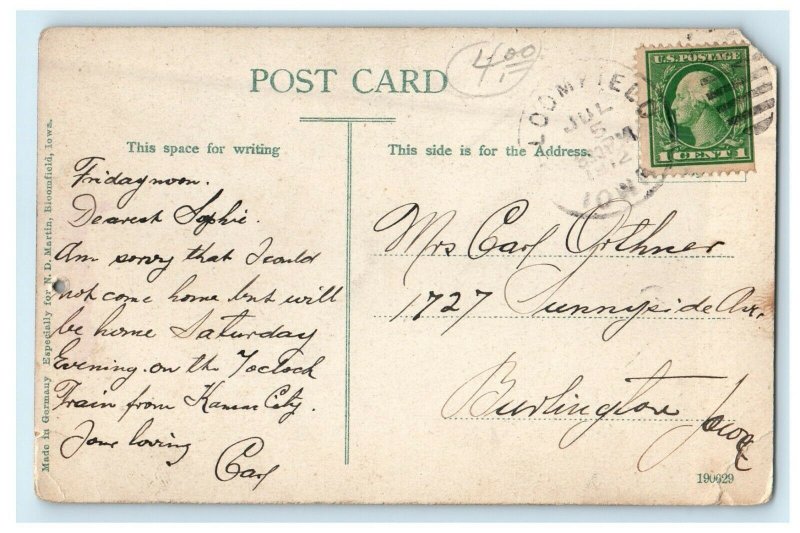 4.00
POST CARD
This space for writing
This side is for the Address.
BLOOMFIELD
JUL
5
1912
IOWA
U.S. POSTAGE
1 CENT 1
Friday noon.
Dearest Sophie.
Am sorry that I could
not come home but will
be home Saturday
Evening on the 7oclock
Train from Kansas City.
Your loving
Carl
Mrs Carl Orthner
1727 Sunnyside Av.
Burlington Iowa
Made in Germany Especially for N. D. Martin, Bloomfield, Iowa.
190629